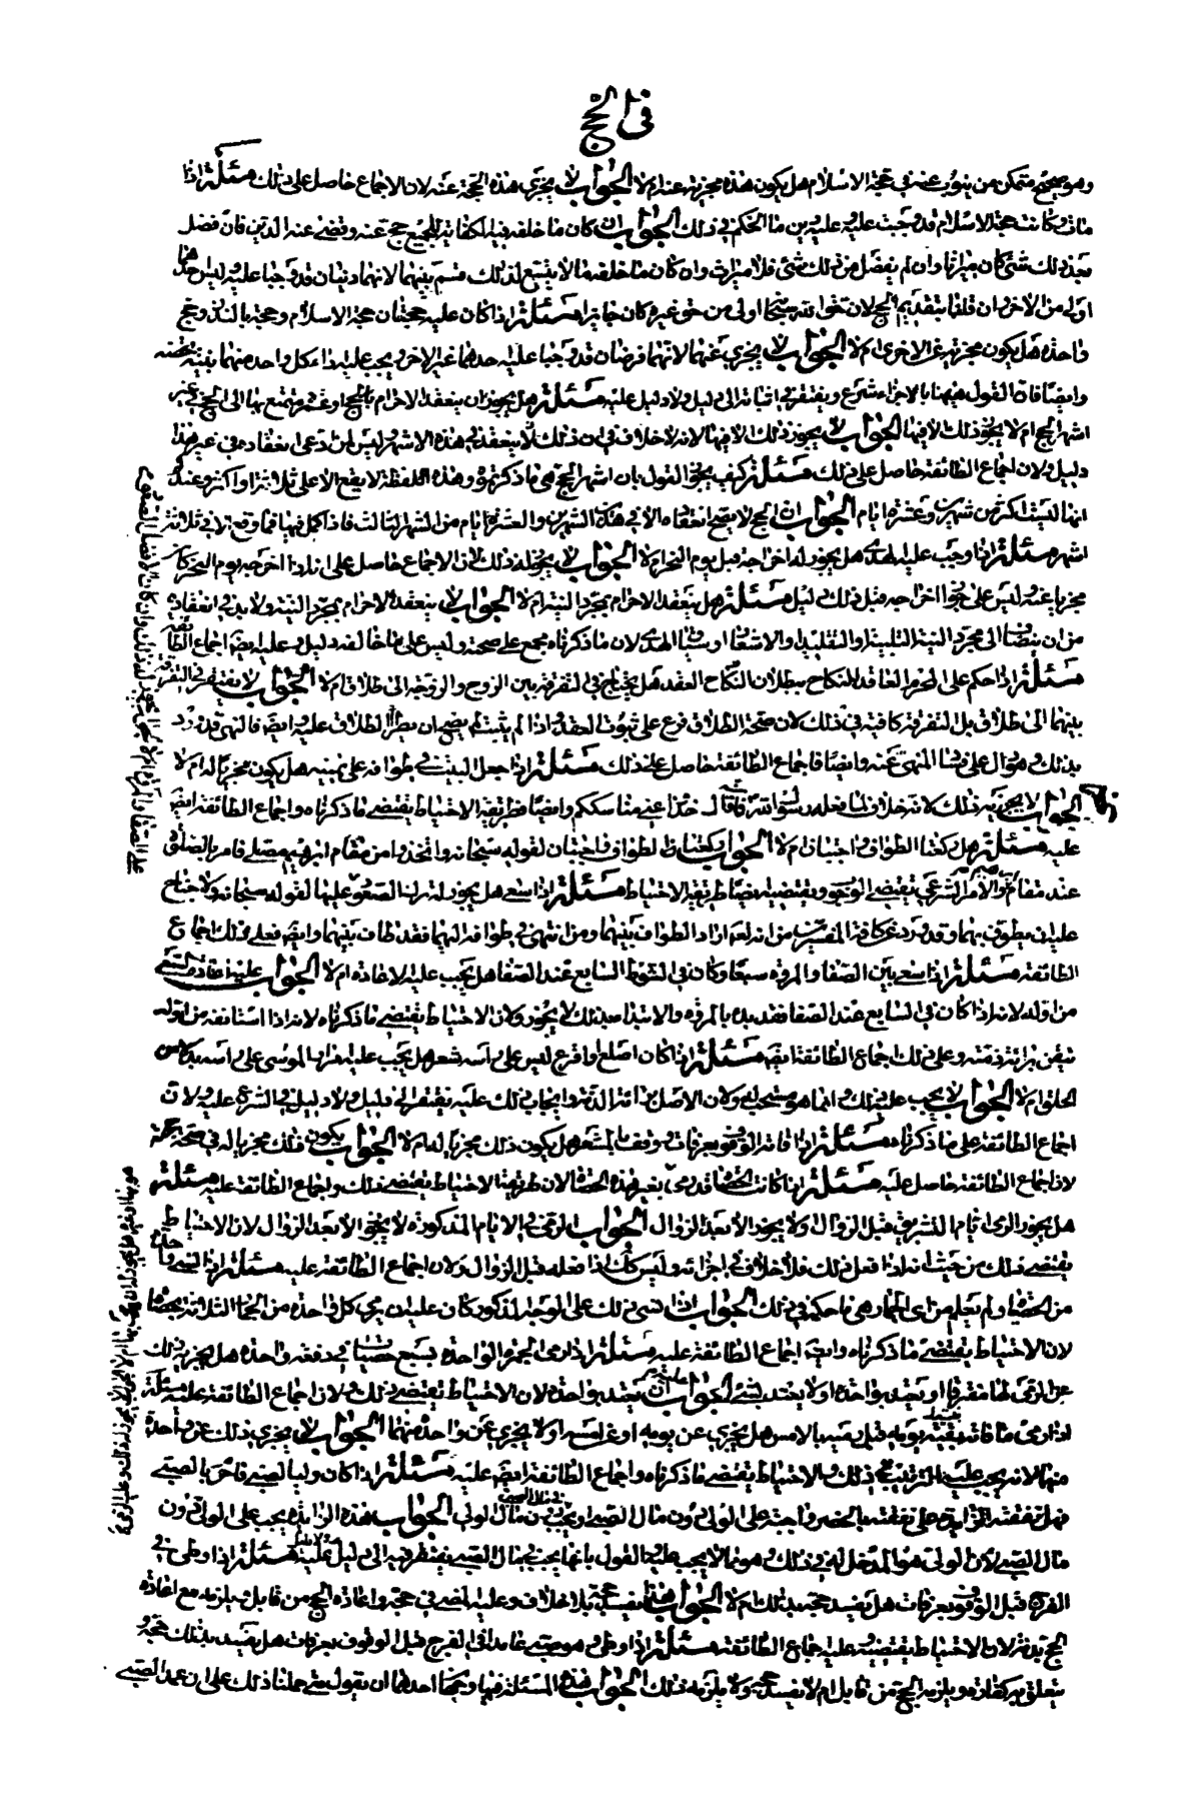 في الحج
وهو صحيح متمكن من ينوب عنه في حجة الاسلام هل يكون هذه مجزية عنه ام لا الجواب لا يجزي هذه الحجة عنه لان الاجماع حاصل على ذلك مسئلة اذا
مات وكانت حجة الاسلام قد وجبت عليه وعليه دين ما الحكم في ذلك الجواب ان كان ما خلفه فيه كفاية للجميع حج عنه وقضى عنه الدين فان فضل
بعد ذلك شئ كان ميراثا وان لم يفضل من ذلك شئ فلا ميراث وان كان ما خلفه مما لا يتسع لذلك قسم بينهما لانهما دينان قد وجبا عليه وليس احدهما
اولى من الاخر وان قلنا بتقديم الحج لان حق الله سبحانه اولى من حق غيره كان جايزا مسئلة اذا كان عليه حجتان حجة الاسلام وحجة بالنذر وحج
واحدة هل يكون مجزية عن الاخرى ام لا الجواب لا يجزي عنهما لانهما فرضان قد وجبا عليه احدهما غير الاخر ويجب عليه اداء كل واحد منهما بنية تخصه
وايضا فان القول هيهنا بالاجزاء شرع ويفتقر في اثباته الى دليل ولا دليل عليه مسئلة هل يجوز ان ينعقد الاحرام بالحج او عمرة متمتع بها الى الحج في غير
اشهر الحج ام لا يجوز ذلك الا فيها الجواب لا يجوز ذلك الا فيها لانه لا خلاف في ان ذلك لا ينعقد في هذه الاشهر وليس لمن ادعى انعقاده في غير هذا
دليل ولان اجماع الطائفة حاصل على ذلك مسئلة كيف يجوز القول بان اشهر الحج هي ما ذكرتموه وهذه اللفظة لا يقع الا على ثلاثة او اكثر وعندكم
انها ليست اكثر من شهرين وعشرة ايام الجواب ان الحج لا يصح انعقاده الا في هذه الشهرين والعشرة ايام من الشهر الثالث فاذا كمل فيها فما وقع الا في ثلاثة
اشهر مسئلة اذا وجب عليه الهدي هل يجوز له اخراجه قبل يوم النحر ام لا الجواب لا يجوز له ذلك لان الاجماع حاصل على انه اذا اخرجه يوم النحر كان
مجزيا عنه وليس على جواز اخراجه قبل ذلك دليل مسئلة هل ينعقد الاحرام بمجرد النية ام لا الجواب لا ينعقد الاحرام بمجرد النية ولا بد في انعقاده
من ان ينضاف الى مجرد النية التلبية او التقليد او الاشعار او سياق الهدي لان ما ذكرناه مجمع على صحته وليس على ما خالفه دليل وعليه ايضا اجماع الطائفة
مسئلة اذا حكم على المحرم العاقد للنكاح ببطلان النكاح العقد هل يحتاج في التفرقة بين الزوج والزوجة الى طلاق ام لا الجواب لا يفتقر في التفرقة
بينهما الى طلاق بل التفرقة كافية في ذلك لان صحة الطلاق فرع على ثبوت العقد واذا لم يثبت لم يصح ان يطرأ الطلاق عليه وايضا فالنهي قد ورد
بذلك وهو دال على فساد المنهى عنه وايضا فاجماع الطائفة حاصل على ذلك مسئلة اذا جعل البيت في طوافه على يمينه هل يكون مجزيا له ام لا
الجواب لا يجزيه ذلك لانه خلاف لما فعله رسول الله فانه قال خذوا عني مناسككم وايضا طريقة الاحتياط يقتضي ما ذكرناه واجماع الطائفة ايضا
عليه مسئلة هل ركعتا الطواف واجبتان ام لا الجواب ركعتا الطواف واجبتان لقوله سبحانه واتخذوا من مقام ابرهيم مصلى فامر بالصلوة
عند مقام والامر الشرعي يقتضي الوجوب ويقتضيه ايضا طريقة الاحتياط مسئلة اذا سعى هل يجوز له ان الصعود عليها لقوله سبحانه ولا جناح
عليه ان يطوف بهما وقد ورد عن كافة المفسرين من انه تعالى اراد الطواف بينهما ومن انتهى في طوافه اليهما فقد طاف بينهما وايضا فعلى ذلك اجماع
الطائفة مسئلة اذا سعى بين الصفا والمروة سبعا وكان في الشوط السابع عند الصفا هل يجب عليه الاعادة ام لا الجواب عليه اعادة السعي
من اوله لانه اذا كان في السابع عند الصفا فقد بدء بالمروة والابتداء بذلك لا يجوز ولان الاحتياط يقتضي ما ذكرناه لانه اذا استانفه من اوله
تيقن برائة ذمته وعلى ذلك اجماع الطائفة ايضا مسئلة اذا كان اصلع او اقرع ليس على راسه شعر هل يجب عليه امرار الموسى على راسه بدلا من
الحلق ام لا الجواب لا يجب عليه ذلك وانما هو مستحب له ولان الاصل برائة الذمة وايجاب ذلك عليه يفتقر الى دليل ولا دليل في الشرع عليه ولان
اجماع الطائفة على ما ذكرناه مسئلة اذا فاته الوقوف بعرفات ووقف بالمشعر هل يكون ذلك مجزيا له ام لا الجواب يكون ذلك مجزيا له في صحة حجه
لان اجماع الطائفة حاصل عليه مسئلة اذا كانت الحصاة قد رمى بها غير هذه الحصاة لان طريقة الاحتياط تقتضي ذلك واجماع الطائفة عليه مسئلة
هل يجوز الرمي ايام التشريق قبل الزوال او لا يجوز الا بعد الزوال الجواب الرمي في الايام المذكورة لا يجوز الا بعد الزوال لان الاحتياط
يقتضي ذلك من حيث انه اذا فعل ذلك فلا خلاف في اجزائه وليس كذلك اذا فعله قبل الزوال ولان اجماع الطائفة عليه مسئلة اذا نسى واحدة
من الحصيات ولم يعلم من اى الجمار هي ما حكمه في ذلك الجواب اذا نسى ذلك على الوجه المذكور كان عليه ان يرمي كل واحدة من الجمار الثلاثة بحصاة
لان الاحتياط يقتضي ما ذكرناه وايضا اجماع الطائفة عليه مسئلة اذا رمى الجمرة الواحدة بسبع حصيات في دفعة واحدة هل يجزيه ذلك
عن الرمي لها متفرقا او يعتد بواحدة او لا يعتد بشئ الجواب ان يعتد بواحدة لان الاحتياط يقتضي ذلك ولان اجماع الطائفة عليه مسئلة
اذا رمى ما فاته بنية يومه قبل رميه بالامس هل يجزي عن يومه او عن امسه او لا يجزي عن واحدة منهما الجواب لا يجزي ذلك عن واحدة
منهما لانه يجب عليه الترتيب في ذلك والاحتياط يقتضي ما ذكرناه واجماع الطائفة ايضا عليه مسئلة اذا كان وليا لصبي فاحرم بالصبي
فهل نفقته الزايدة على نفقته بالحضر واجبة على الولي دون مال الصبي او يجب من مال الولي الجواب هذه الزايدة يجب على الولي دون
مال الصبي لان الولي هو المدخل له في ذلك وهو مما لا يجب عليه والقول بانها يجب في مال الصبي يفتقر فيه الى دليل عليه مسئلة اذا وطى في
الفرج قبل الوقوف بعرفات هل يفسد حجه بذلك ام لا الجواب هذا يفسد حجه بلا خلاف وعليه المضي في حجه واعادة الحج من قابل ويلزمه مع اعادة
الحج بدنة لان الاحتياط يقتضيه وعليه اجماع الطائفة مسئلة اذا وطى وهو صبي عامدا في الفرج قبل الوقوف بعرفات هل يفسد بذلك حجه و
يتعلق به كفارة ويلزمه الحج من قابل ام لا يفسد حجه ولا يلزمه ذلك الجواب هذه المسئلة فيها وجهان احدهما ان يقول متى حملنا ذلك على ان عمد الصبي